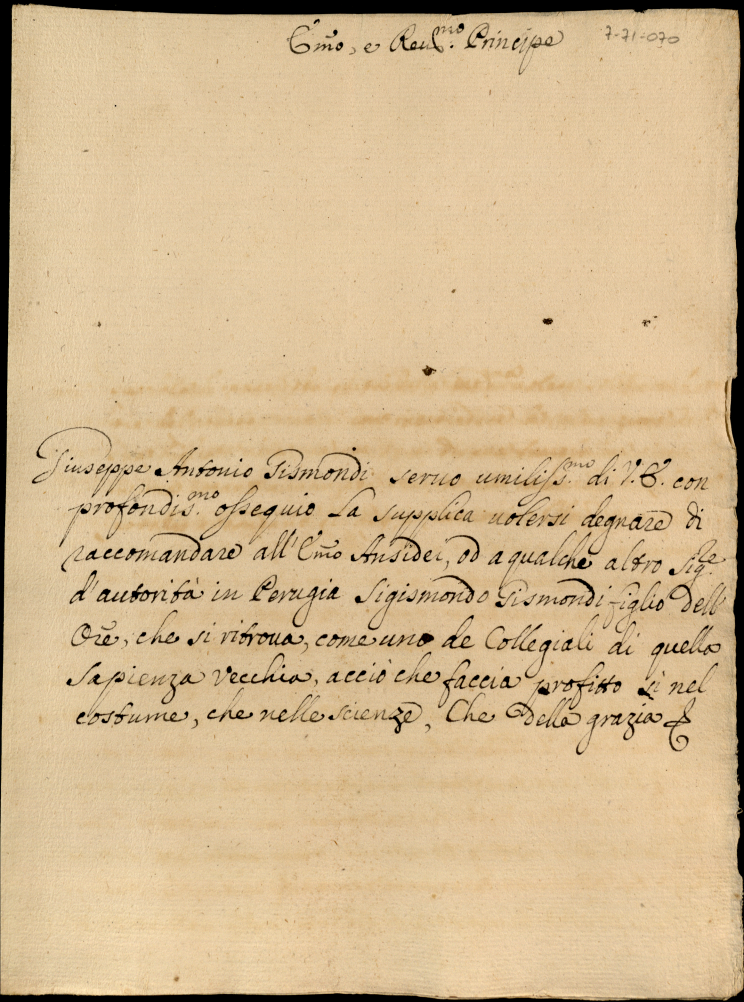 Em̃o, e Reuᵐᵒ. Principe
7-71-070
Giuseppe Antonio Gismondi seruo umilissᵐᵒ. di V. E. con
profondisᵐᵒ. ossequio La supplica uolersi degnare di
raccomandare all'Em̃o Ansidei, od a qualche altro Sigʳᵉ.
d'autorità in Perugia Sigismondo Gismondi figlio dell'
Orẽ, che si ritroua, come uno de Collegiali di quella
Sapienza Vecchia, acciò che faccia profitto sì nel
costume, che nelle scienze, Che della grazia &